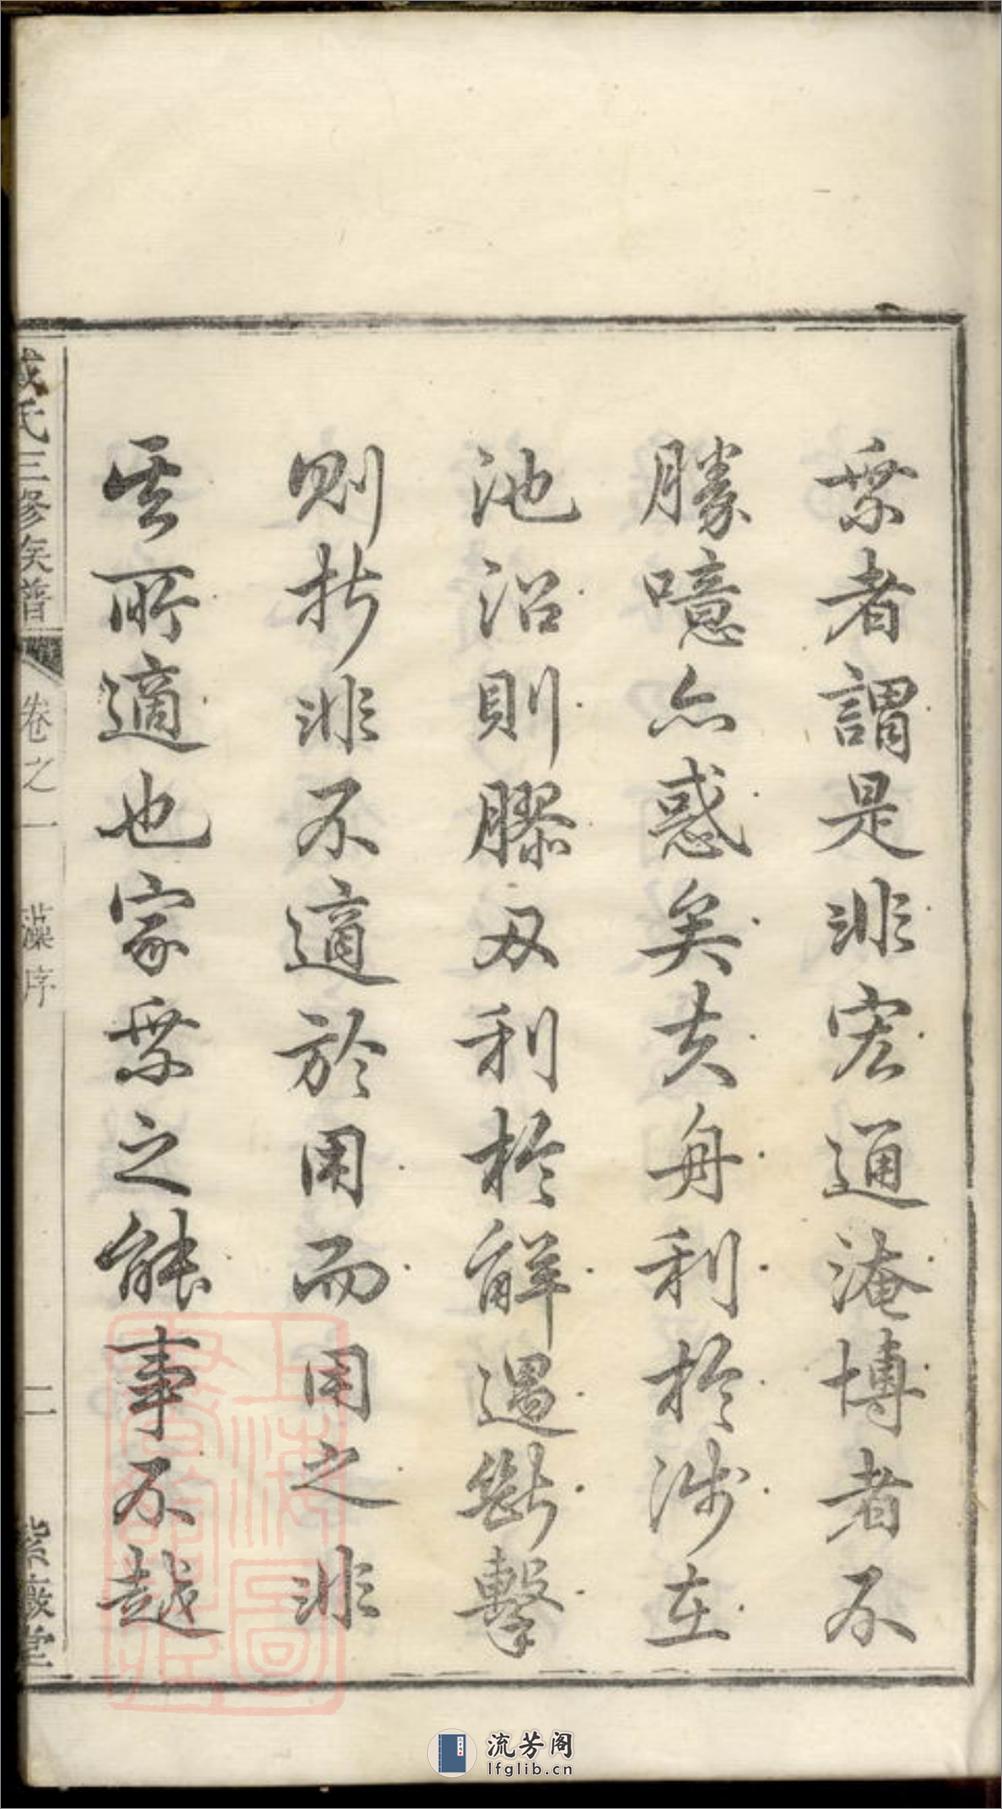 乘者謂是非宏通淹博者不
勝噫亦惑矣夫舟利於涉在
池沼則膠刃利於解遇斷擊
則折非不適於用而用之非
其所適也家乘之能事不越
氏三修族譜 卷之一 藻序 二 堂
上海圖書館藏
流芳阁
lfglib.cn